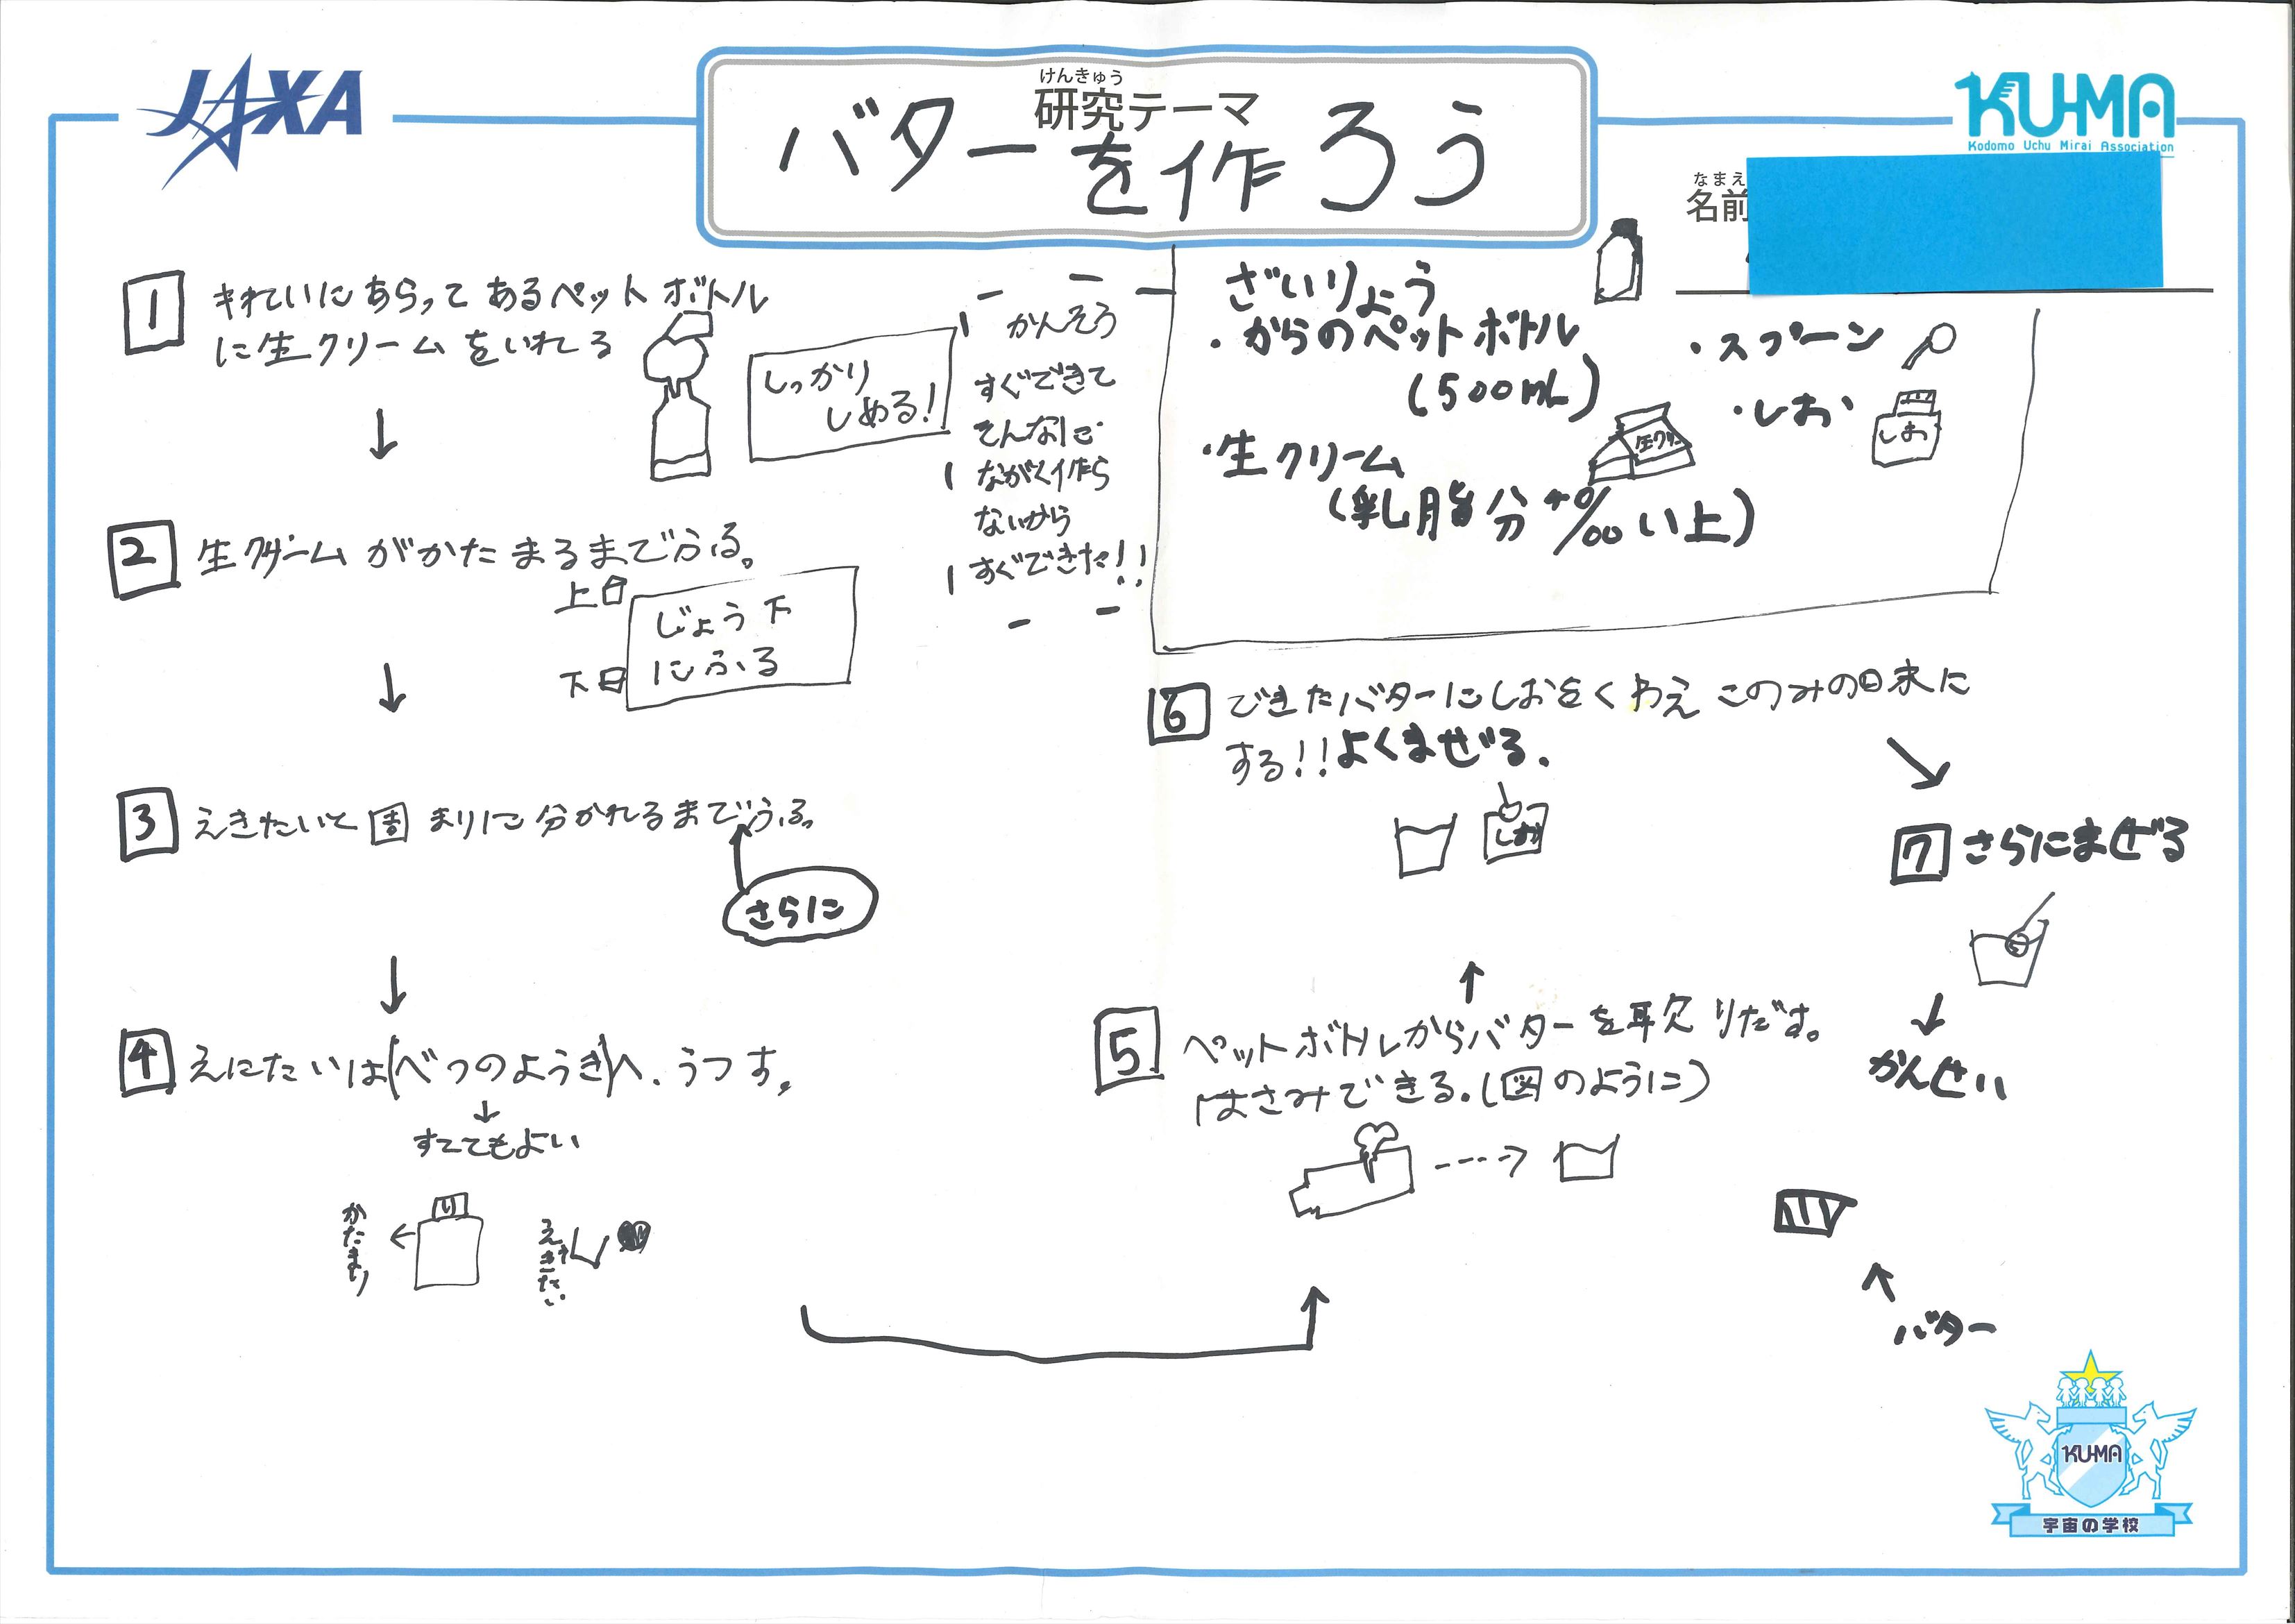 JAXA
けんきゅう
研究テーマ
バターを作ろう
KU-MA
Kodomo Uchu Mirai Association
なまえ
名前
1 きれいにあらってあるペットボトル
に生クリームをいれる
しっかり
しめる!
↓
2 生クリームがかたまるまでふる。
上
下
じょう下
にふる
↓
3 えきたいと固まりに分かれるまでふる。
さらに
↓
4 えにたいは(べつのようき)へ、うつす。
↓
すててもよい
かたまり
←
えきたい
かんそう
すぐできて
そんなに
ながく作ら
ないから
すぐできた!!
ざいりょう
・からのペットボトル
(500mL)
・生クリーム
生クリ
(乳脂分40%い上)
・スプーン
・しお
しお
5 ペットボトルからバターを取りだす。
はさみできる.(図のように)
↑
6 できたバターにしおをくわえこのみの味に
する!!よくまぜる.
しお
7 さらにまぜる
↓
かんせい
バター
KU-MA
宇宙の学校